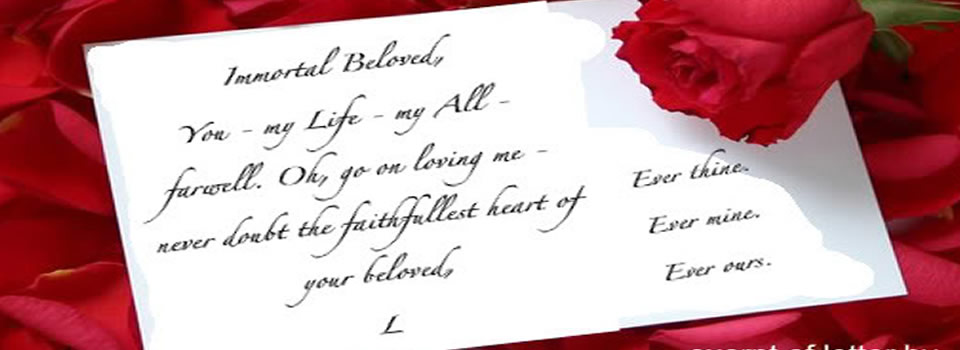 Immortal Beloved,
You - my Life - my All -
farwell. Oh, go on loving me -
never doubt the faithfullest heart of
your beloved,
L
Ever thine.
Ever mine.
Ever ours.